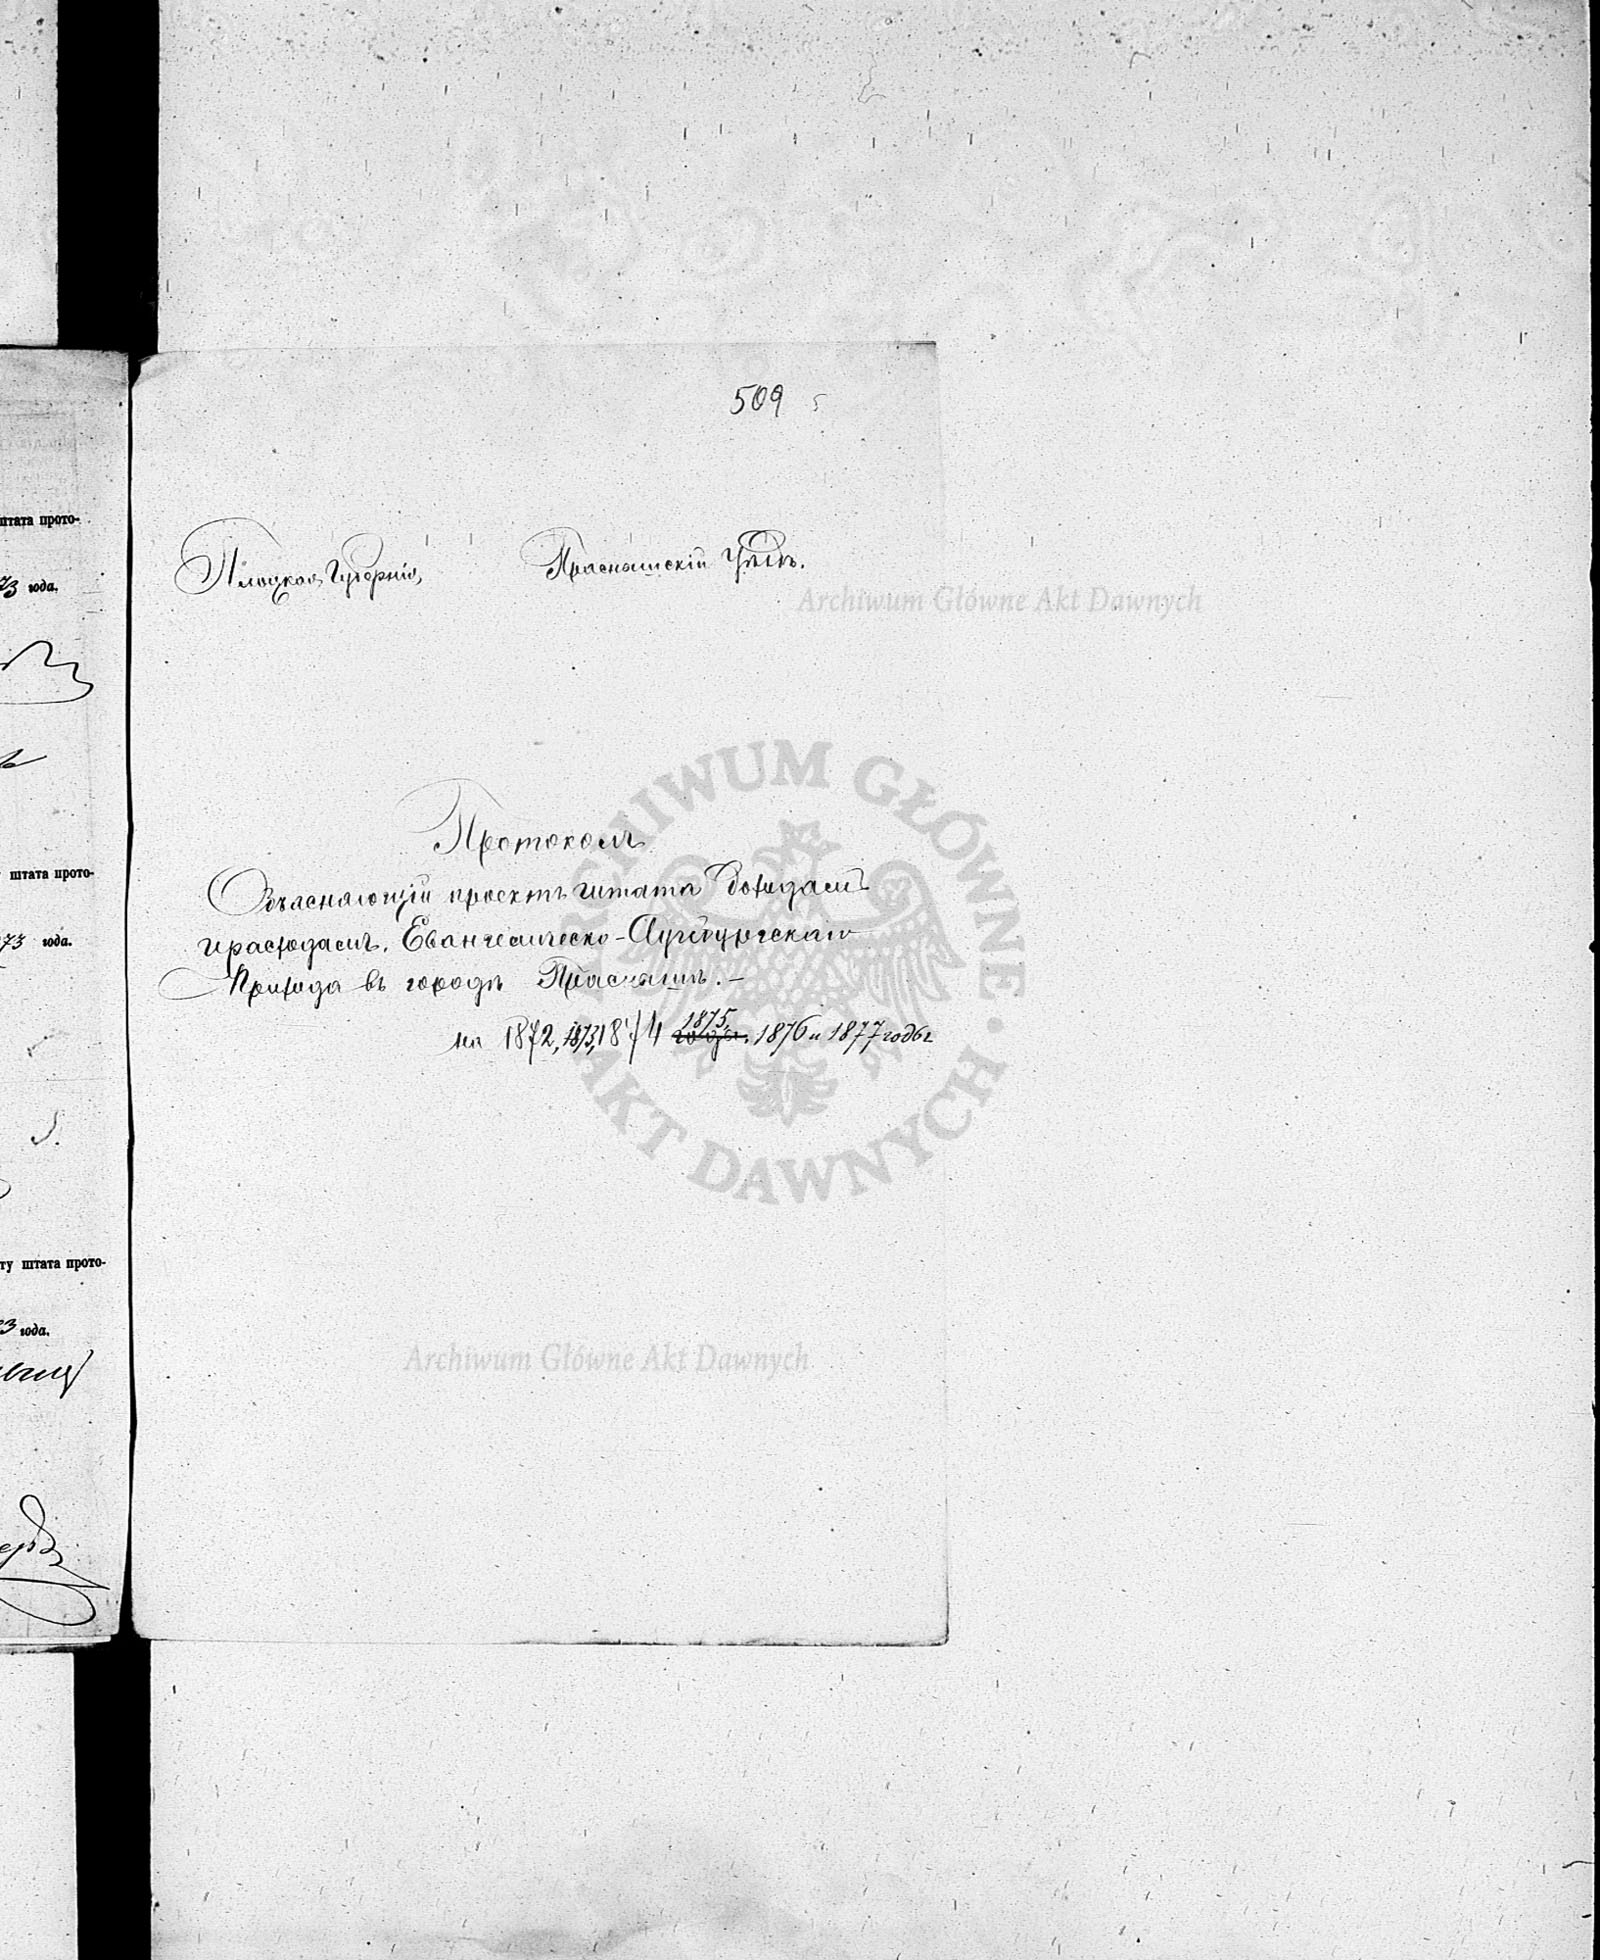 штата прото-
73 года.
штата прото-
73 года.
ту штата прото-
3 года.
509
Плоцкая Губернія, Праснышскій Уѣздъ.
Archiwum Główne Akt Dawnych
Протоколъ
Объясняющій проектъ штата доходамъ
и расходамъ Евангелическо-Аугсбургскаго
Прихода въ городѣ Праснышѣ.-
на 1872, 1873, 1874 годы. 1875, 1876 и 1877 годы
ARCHIWUM GŁÓWNE · AKT DAWNYCH ·
Archiwum Główne Akt Dawnych